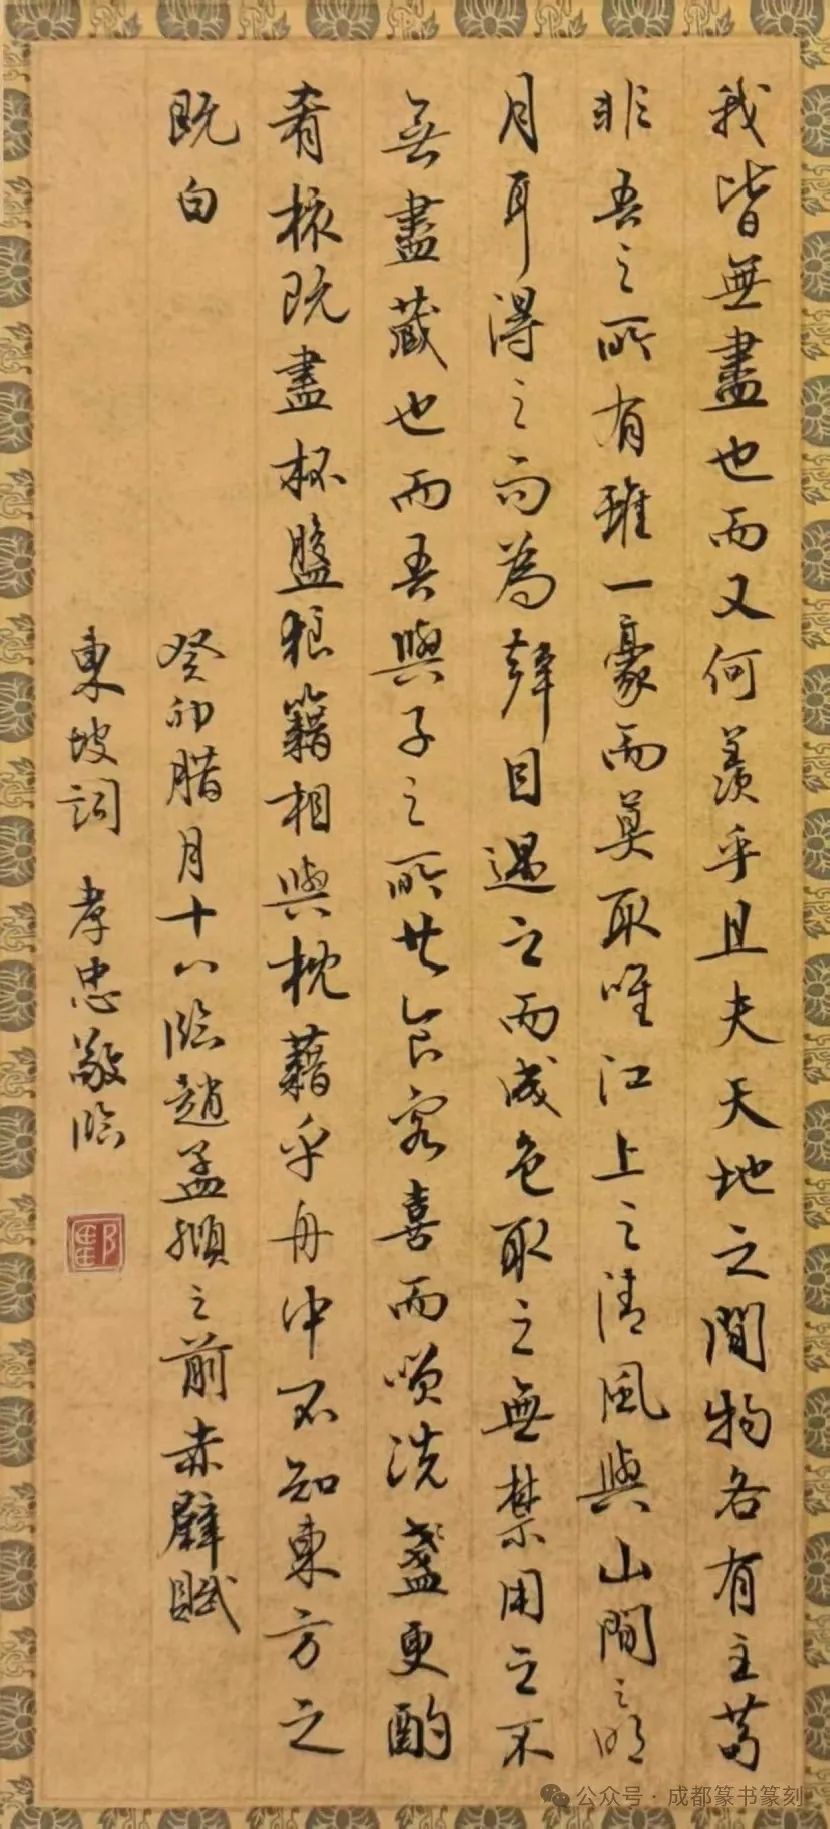 我皆無盡也而又何羨乎且夫天地之間物各有主苟
非吾之所有雖一豪而莫取唯江上之清風與山間之明
月耳得之而為聲目遇之而成色取之無禁用之不
無盡藏也而吾與子之所共食客喜而咲洗盞更酌
肴核既盡杯盤狼籍相與枕藉乎舟中不知東方之
既白
癸卯腊月十八臨趙孟頫之前赤壁賦
東坡詞 孝忠敬臨
公众号·成都篆书篆刻